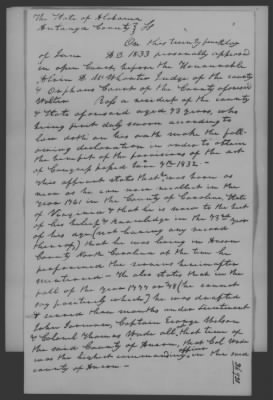 The State of Alabama
Autauga County } SS
On this twenty fourth day
of June A.D. 1833 personally appeared
in open Court before the Honourable
D. McWhorter Judge of the county
& Orphans Court of the County aforesaid
William Ross a resident of the county
& State aforesaid aged 73 years, who
being first duly sworn according to
law doth on his oath make the foll-
owing declaration in order to obtain
the benefit of the provisions of the act
of Congress passed June 7th 1832 -
this affiant states that he was born as
near as he can now recollect in the
year 1761 in the County of Caroline, State
of Virginia & that he is now to the best
of his belief & knowledge in the 73rd year
of his age (not having any record
thereof) that he was living in Anson
County North Carolina at the time he
performed the service hereinafter
mentioned - He also states that in the
fall of the year 1777 or 78 (he cannot
say positively which) he was drafted
& served three months under Lieutenant
John Jarman, Captain George Wilson
& Colonel Thomas Wade all, that time of
the said County of Anson, that Col Wade
was the highest commanding officer in the said
county of Anson -